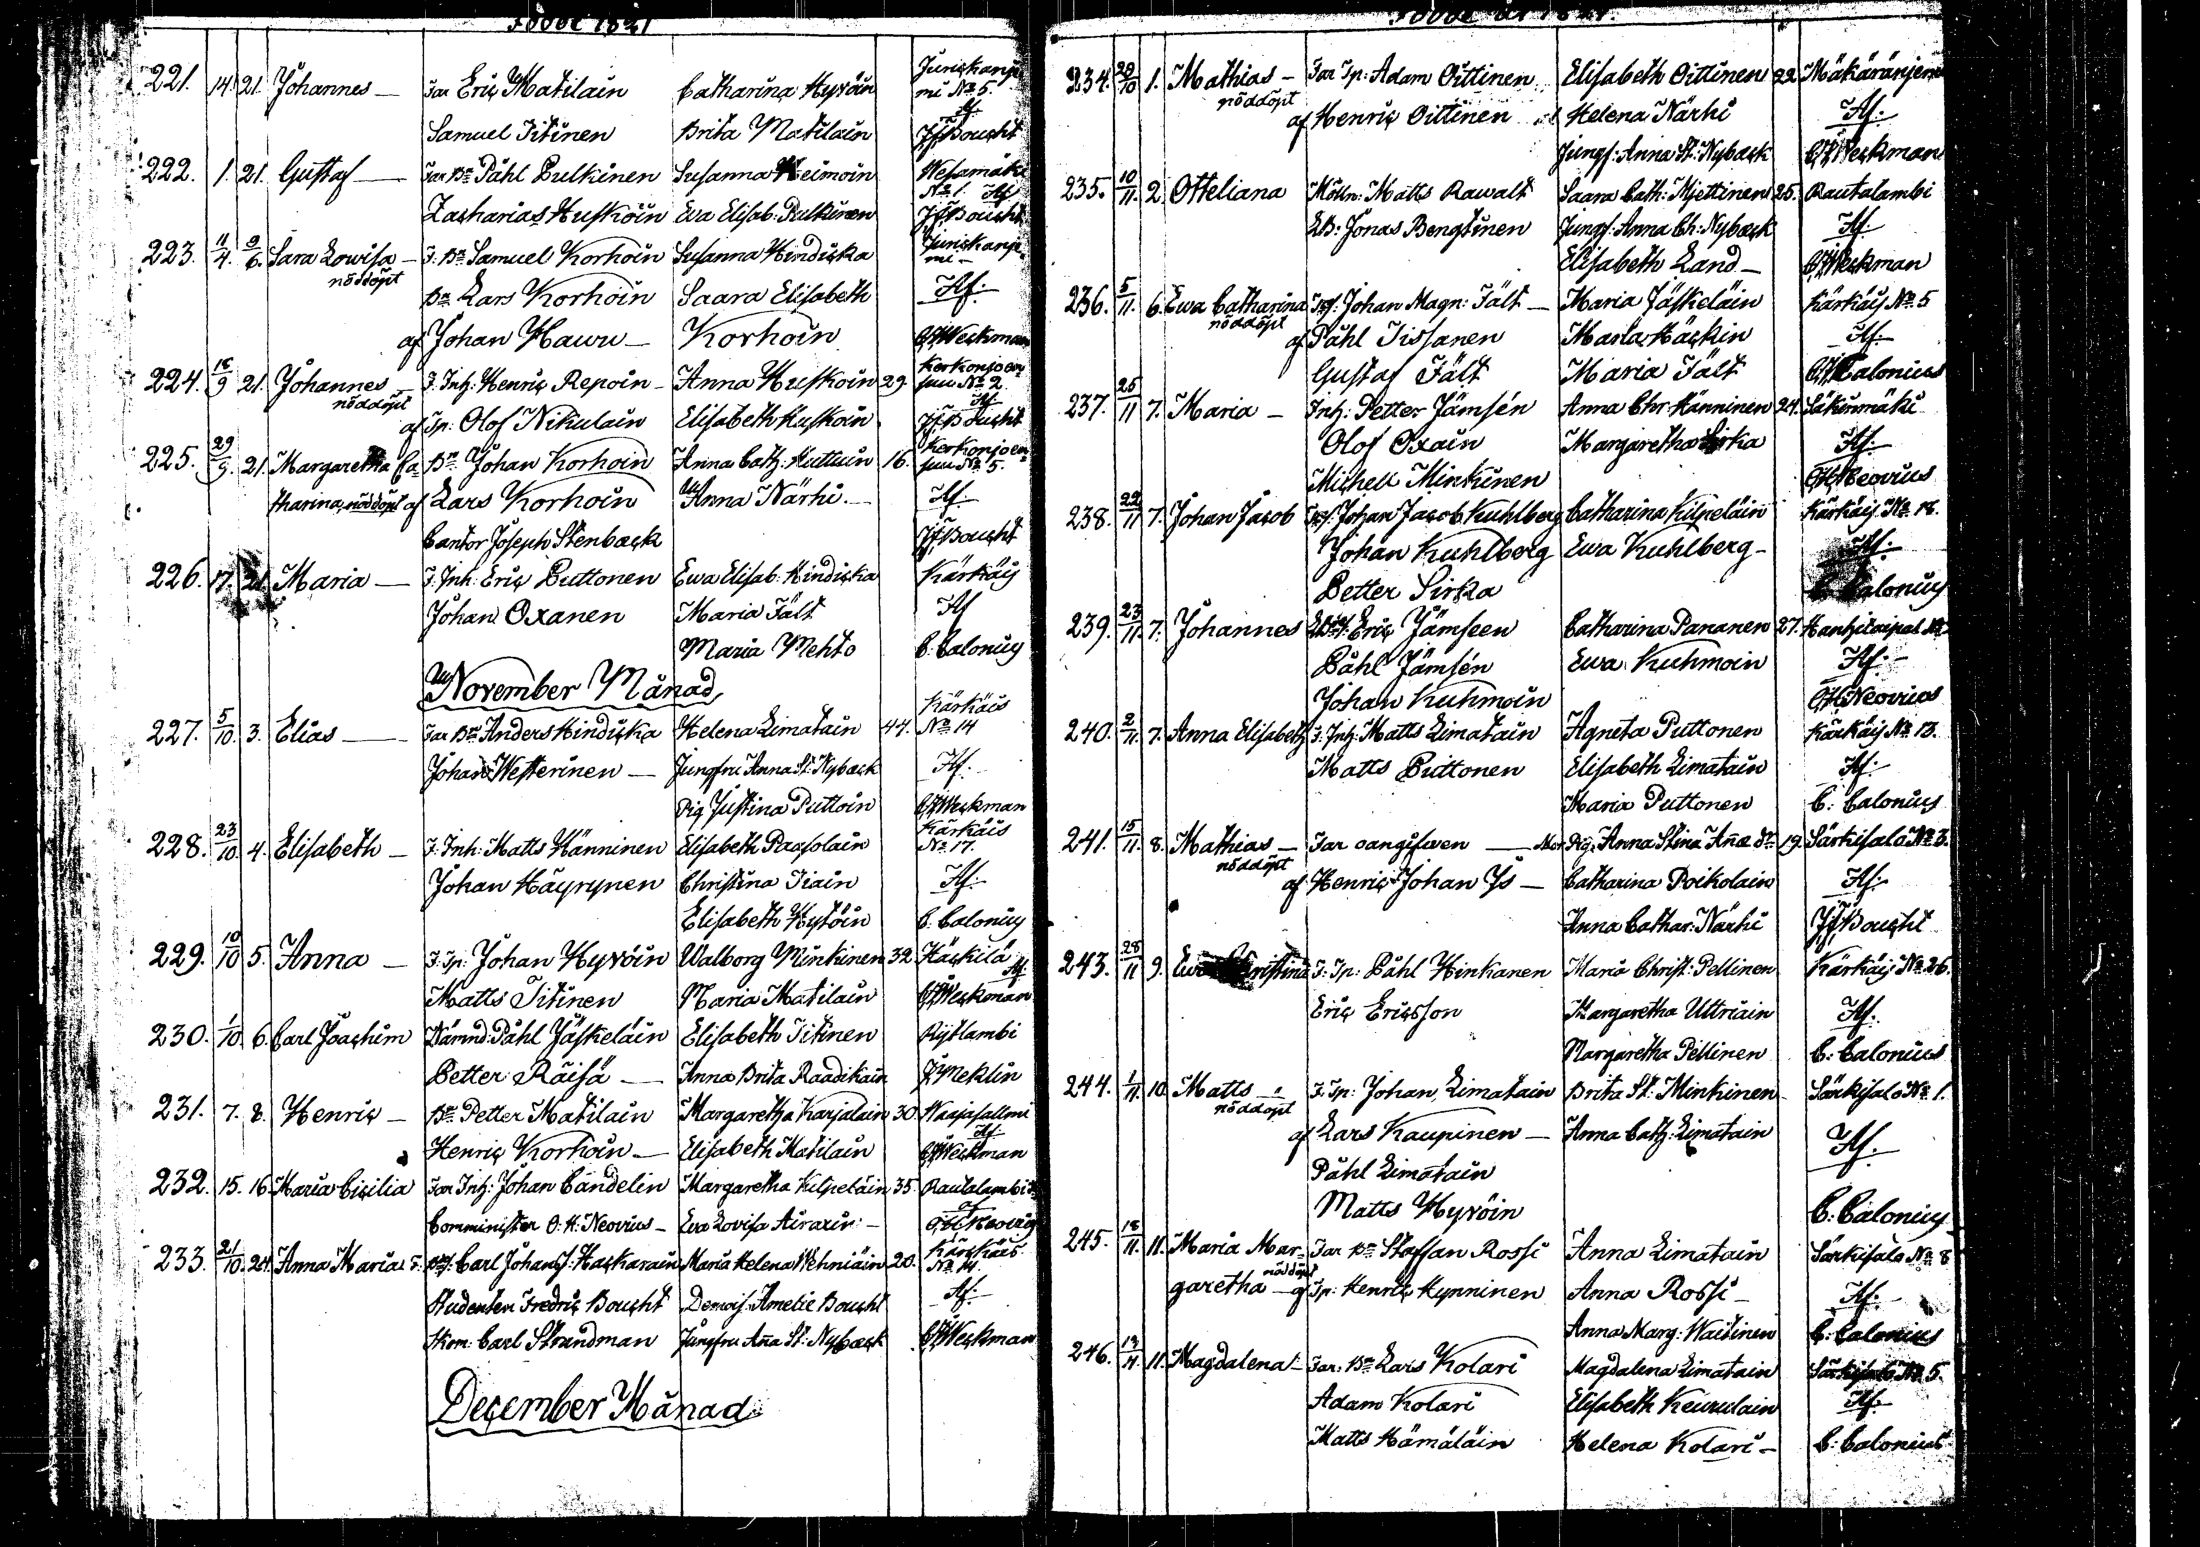 Födde 1821
221. 14. 21. Johannes — Far Eriç Matilain Catharina Hyröin Juriskanje
mi No 5.
Samuel Titinen Brita Matilain Af JF Boucht
222. 1. 21. Gustaf — Far Bn Påhl Pulkinen Susanna Heimoin Wesamäki
No 1. Af
Zacharias Huskoin Eva Elisab: Pulkinen JF Boucht
223. 11/4. 9/6. Sara Lowisa — F. Bn Samuel Korhoin Susanna Hindicka
nöddöpt
Bn Lars Korhoin Saara Elisabeth Af.
af Johan Hawu — Korhoin CG Weckman
224. 16/9 21. Johannes — F. Inh: Henriç Repoin — Anna Huskoin 29.
nöddöpt No 2. Af
af Tp. Olof Nikulain Elisabeth Huskoin JF Boucht
225. 29/9. 21. Margaretha Ca Bn Johan Korhoin Anna Cath: Huttuin 16. No 5.
tharina, nöddöpt af Lars Korhoin Anna Närhi — Af
Cantor Joseph Stenback JF Boucht
226. 17. 21. Maria — F. Inh: Eriç Puttonen Ewa Elisab: Hindicka Kärkäis
Johan Oxanen Maria Fält Af
Maria Mehto C. Calonius
November Månad
227. 5/10. 3. Elias — Far Bn Anders Hindicka Helena Limatain 44. Kärkäis
No 14
Johan Westerinen — Jungfru Anna St: Nyback Af.
Pig Justina Puttoin CG Weckman
228. 23/10 4. Elisabeth — F. Inh: Matts Hänninen Elisabeth Paasolain Kärkäis
No 17.
Johan Häyrynen Christina Tiain Af.
Elisabeth Hytöin C. Calonius
229. 10/10 5. Anna — F. Tp: Johan Hyröin Walborg Minkinen 32. Häckilä
Af.
Matts Titinen Maria Matilain CG Weckman
230. 1/10. 6. Carl Joachim Nämnd: Påhl Jäskeläin Elisabeth Titinen Rytlambi
Petter Räisä — Anna Brita Raadikain Meklin
231. 7. 8. Henriç — Bn Petter Matilain Margaretha Karjalain 30. Waajasalmi
Af.
Henriç Korhoin — Elisabeth Matilain CG Weckman
232. 15. 16. Maria Cicilia Far Inh: Johan Candelin Margaretha Kilpeläin 35. Rautalambi
Comminister O. H. Neovius — Eva Lovisa Airaxin — O. H. Neovius
233. 21/10. 24. Anna Maria Carl Johan Hackarain Maria Helena Wehniäin 20. Kärckäis
No 14.
Studenten Fredriç Boucht Demois: Amelie Boucht Af.
Carl Strandman Jungfru Aña St: Nyback CG Weckman
December Månad
Födde år 1821.
234. 29/10 1. Mathias — Far Tp: Adam Oittinen Elisabeth Oittinen 22. Mäkäränjemi
nöddöpt
af Henriç Oittinen Helena Närhi Af.
Jungf: Anna St: Nyback CG Weckman
235. 10/11. 2. Otteliana Matts Rawalt Saara Cath: Mjettinen 25. Rautalambi
Jonas Bengtinen Jungf: Anna Ch: Nyback Af.
Elisabeth Land — CG Weckman
236. 5/11. 6. Ewa Catharina Johan Magn: Fält — Maria Jäskeläin Kärkäis No 5
nöddöpt
af Påhl Tissanen Maria Häckin Af.
Gustaf Fält Maria Fält Calonius
237. 25/11 7. Maria — Inh: Petter Jämsén Anna Chr: Hänninen 24. Säkinmäki
Olof Oxain Margaretha Sirka Af.
Michell Minkinen OH Neovius
238. 22/11 7. Johan Jacob Johan Jacob Kuhlberg Catharina Kilpeläin Kärkäis No 18.
Johan Kuhlberg Ewa Kuhlberg — Af.
Petter Sirka C. Calonius
239. 23/11. 7. Johannes Eriç Jämseen Catharina Pananen 27.
Påhl Jämsén Ewa Kuhmoin Af.
Johan Kuhmoin OH Neovius
240. 2/11. 7. Anna Elisabeth F. Inh: Matts Limatain Agneta Puttonen Kärkäis No 13.
Matts Puttonen Elisabeth Limatain Af.
Maria Puttonen C. Calonius
241. 15/11. 8. Mathias — Far oangifwen — Mor Pig. Anna Stina Aña dr 19. Särkisalo No 3.
nöddöpt
af Henriç Johan Js — Catharina Poikolain Af.
Anna Cathar: Närhi JF Boucht
243. 28/11 9. Ewa Christina F. Tp: Påhl Hinkanen Maria Christ: Pellinen Kärkäis No 26.
Eriç Ericsson Margaretha Uttriain Af.
Margaretha Pellinen C. Calonius
244. 1/11. 10. Matts — F. Tp: Johan Limatain Brita St: Minkinen Särkisalo No 1.
nöddöpt
af Lars Kaupinen — Anna Cath: Limatain Af.
Påhl Limatain
Matts Hyröin C. Calonius
245. 18/11. 11. Maria Mar- Far Bn Staffan Rossi Anna Limatain Särkisalo No 8
nöddöpt
garetha — af Tp: Henriç Hynninen Anna Rossi — Af.
Anna Marg: Waitinen C. Calonius
246. 13/11 11. Magdalena — Far: Bn Lars Kolari Magdalena Limatain Särkisalo No 5.
Adam Kolari Elisabeth Keurulain Af.
Matts Hämäläin Helena Kolari — C. Calonius